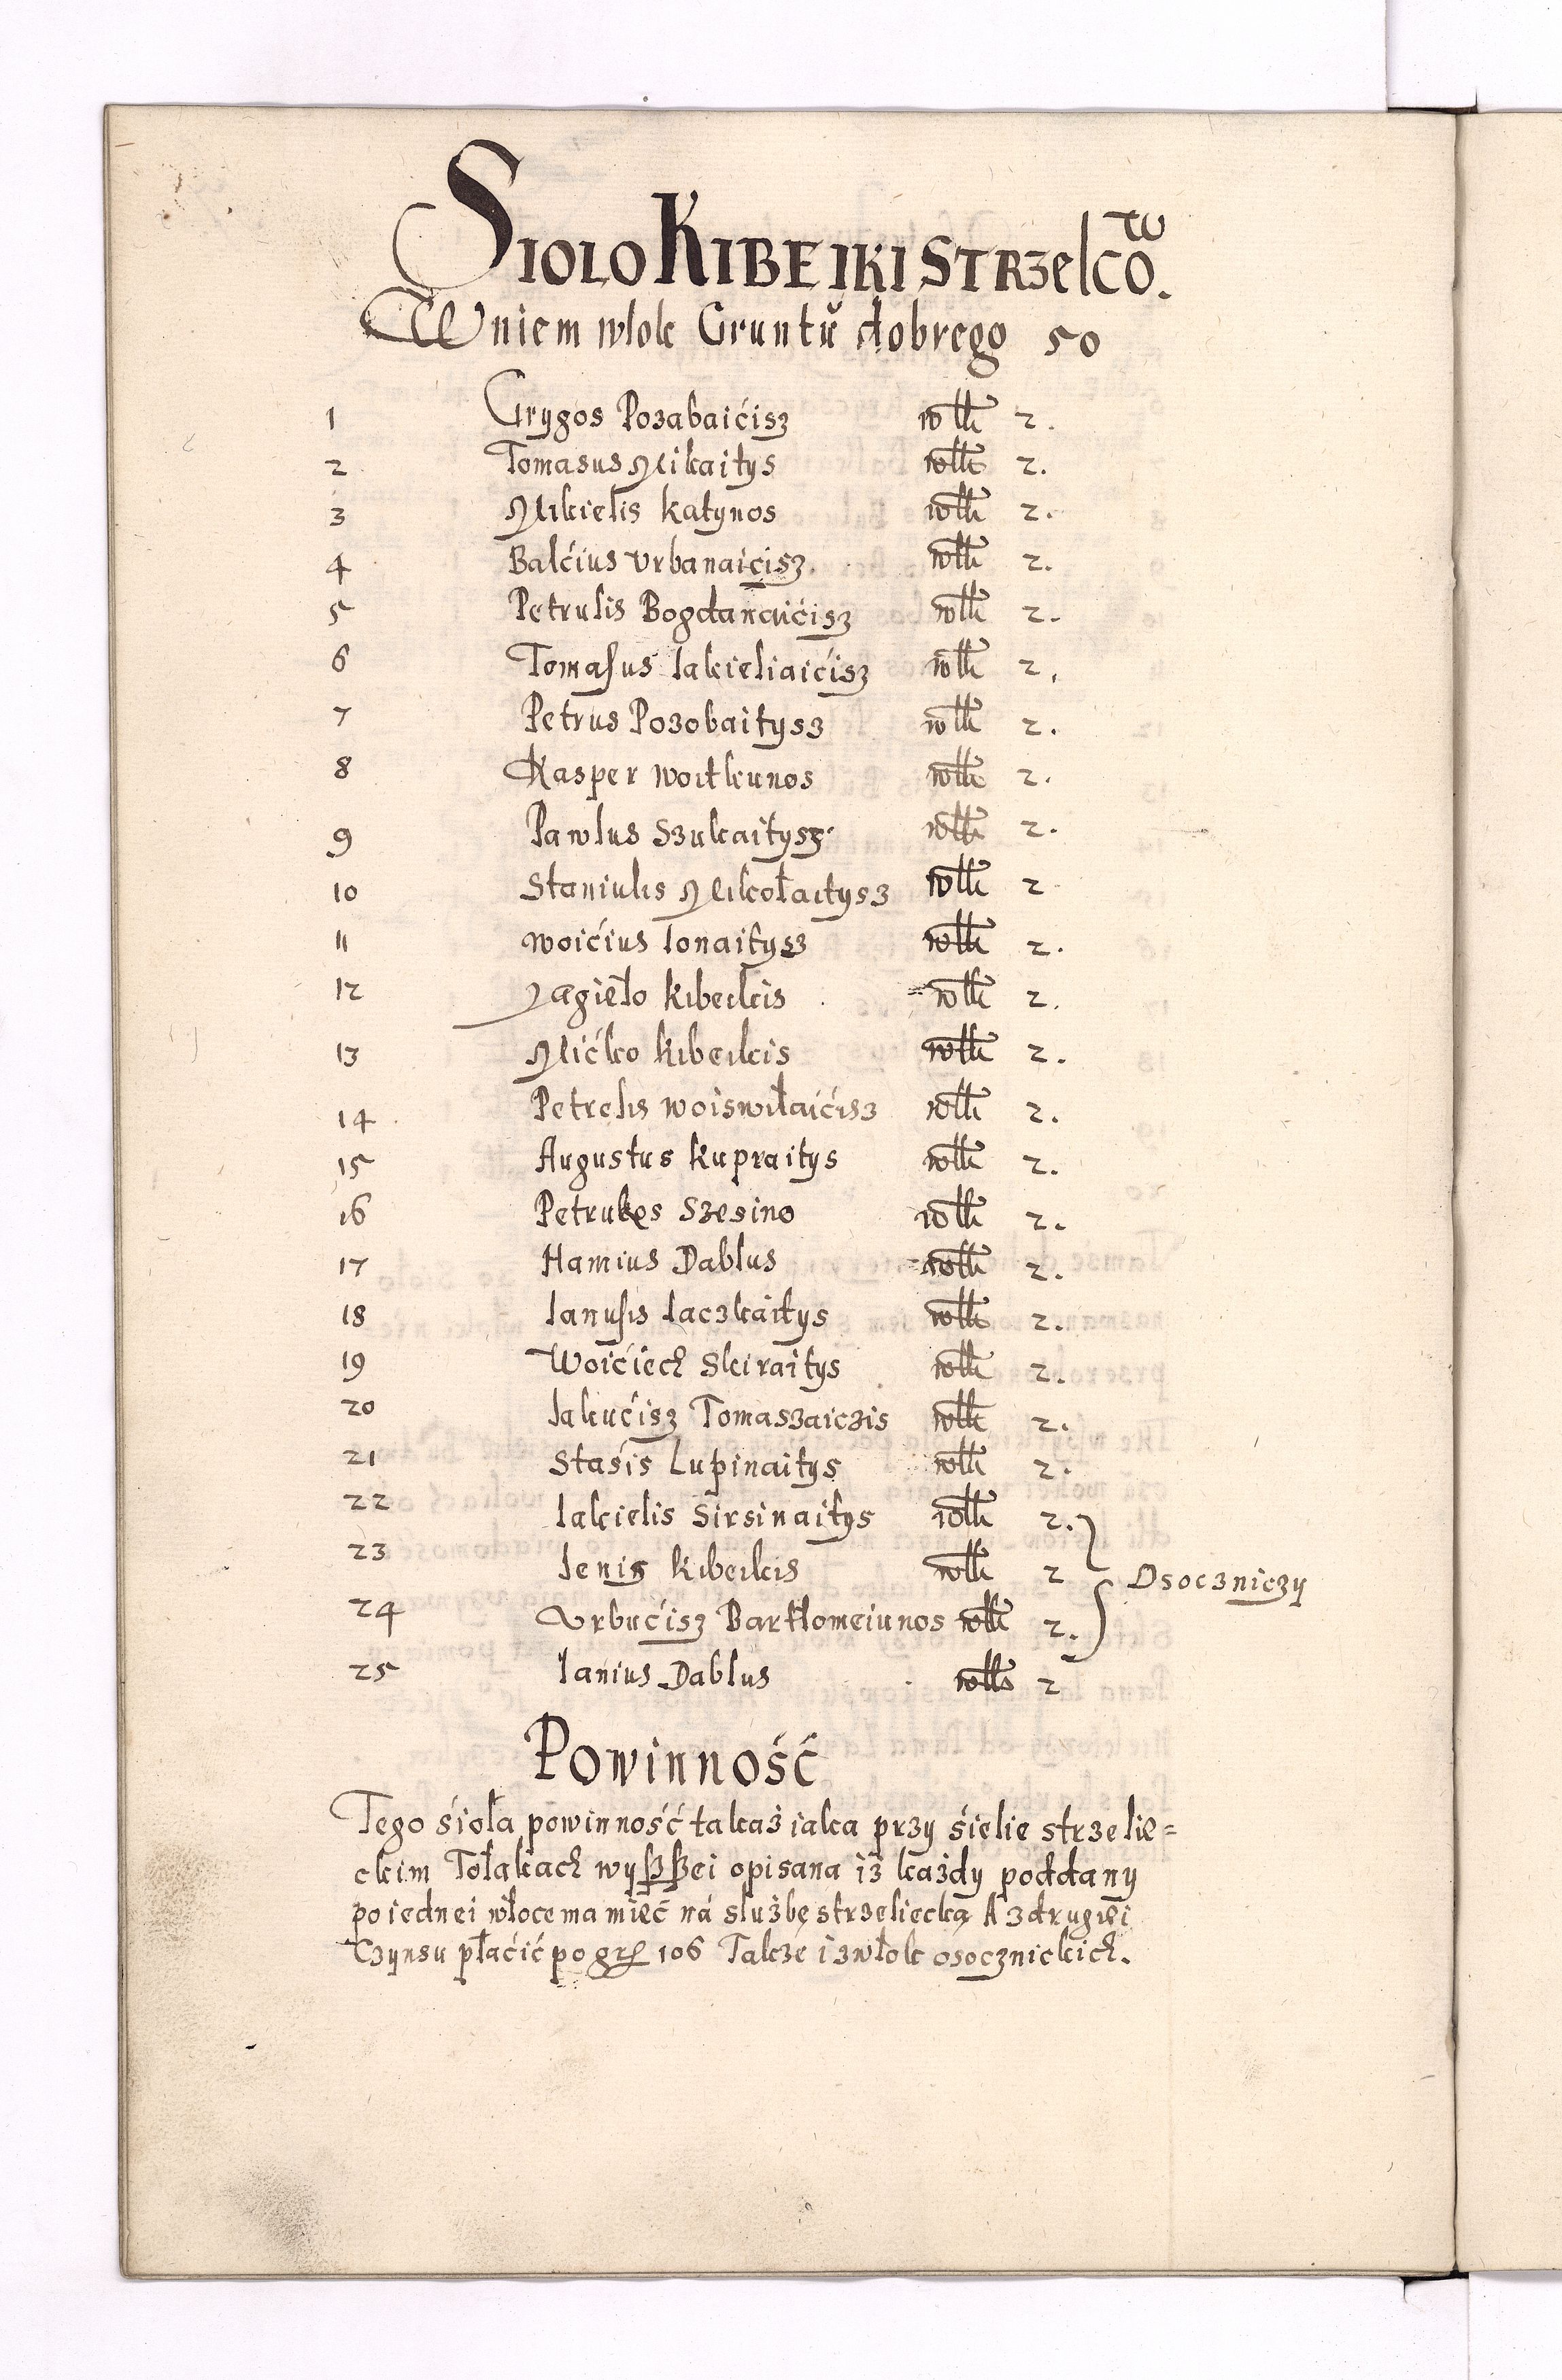 SIOLO KIBEIKI STRZelCOw.
W niem włok Gruntŭ dobrego 50
1 Grygos Pozabaićisz włk 2.
2 Tomasus Mikaitys włk 2.
3 Mikielis Katynos włk 2.
4 Balćius Vrbanaićisz włk 2.
5 Petrulis Bogdanaićisz włk 2.
6 Tomaſus Iakieliaićisz włk 2.
7 Petrus Pozobaitysz włk 2.
8 Kasper Woitkunos włk 2.
9 Pawlus Szukaitysz włk 2.
10 Staniulis Mikołaitysz włk 2
11 Woićius Ionaitysz włk 2.
12 Jagieło Kibeikis włk 2.
13 Mićko Kibeikis włk 2.
14 Petrelis Woiswiłaićisz włk 2.
15 Augustus Kupraitys włk 2.
16 Petrukos Szesino włk 2.
17 Hamius Dablus włk 2.
18 Ianuſis Iaczkaitys włk 2.
19 Woićiech Skiraitys włk 2.
20 Iakućisz Tomaszaiczis włk 2.
21 Staśis Lupinaitys włk 2.
22 Iakielis Sirsinaitys włk 2.
23 Ienis Kibeikis włk 2 Osoczniczy
24 Vrbućisz Bartłomeiunos włk 2.
25 Ianius Dablus włk 2
Powinność
Tego śioła powinność takaż iaka przy śielie strzelie=
ckim Tołakach wyßßei opisana iż każdy poddany
po iednei włoce ma mieć ná służbę strzeliecką A z drugiei
Czynsu płaćić po gr 106 Także i z włok osocznickich.